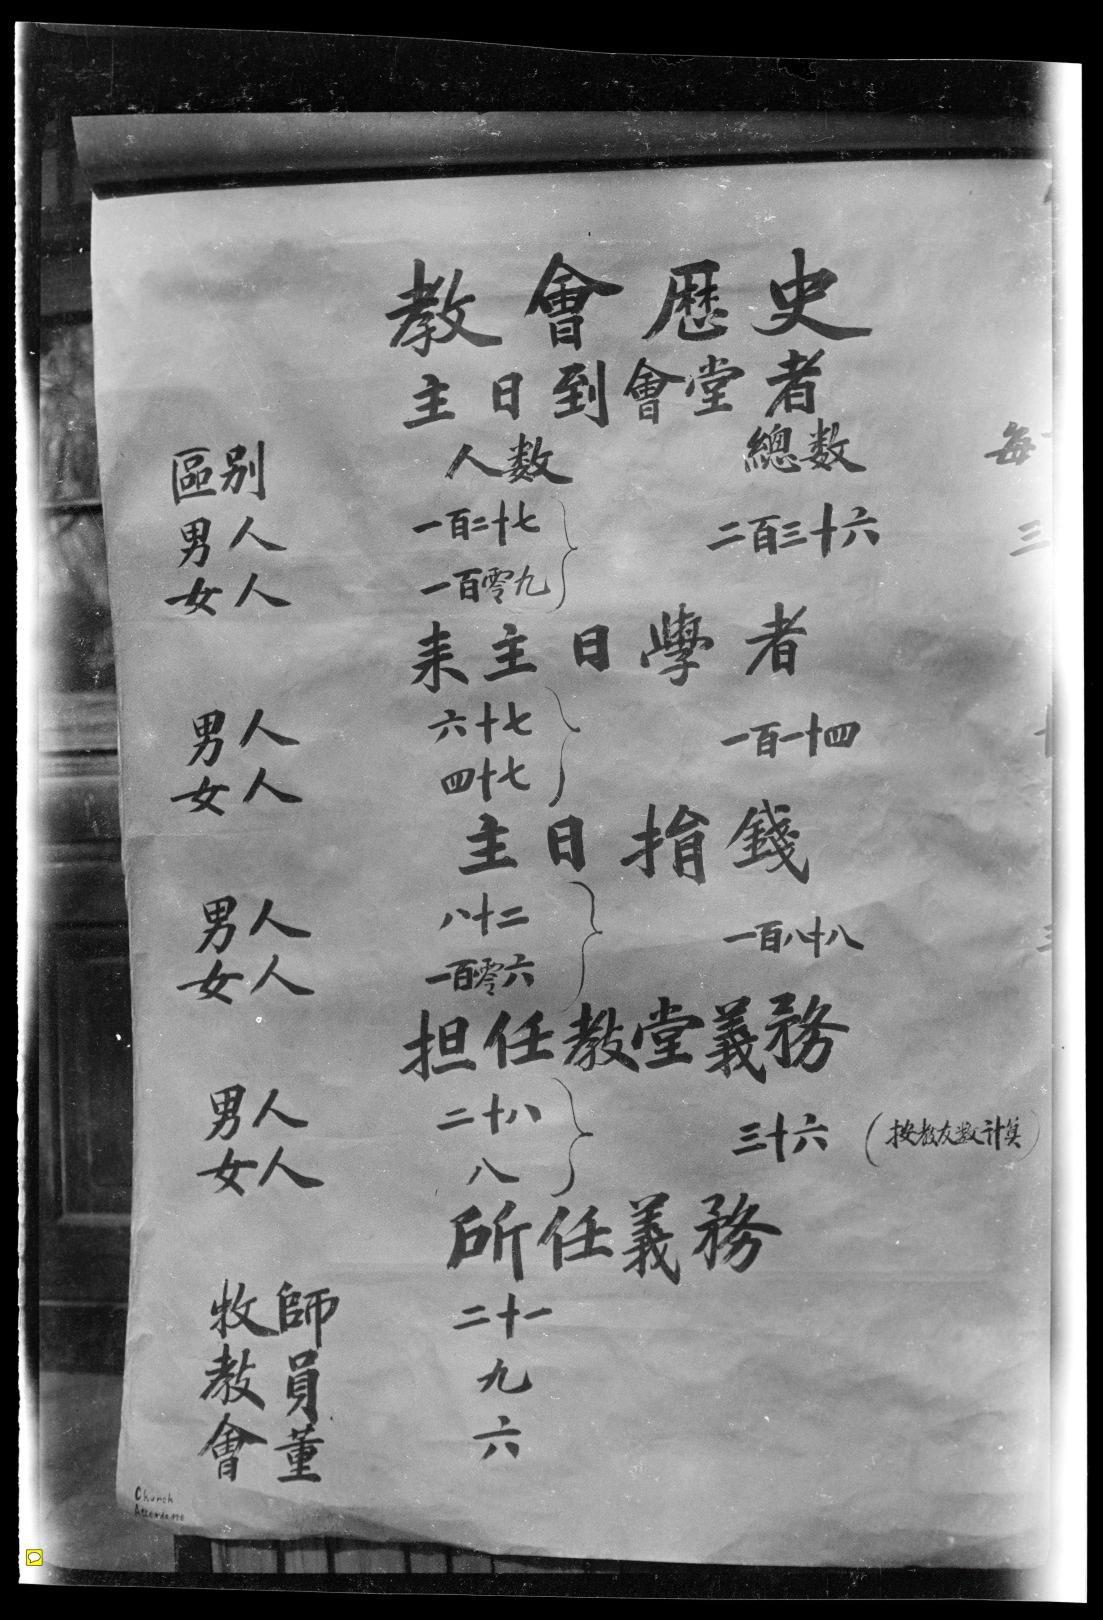 教會歷史
主日到會堂者
區别 人数 總数 每
男人 一百二十七 二百三十六 三
女人 一百零九
耒主日學者
男人 六十七 一百一十四 十
女人 四十七
主日捐錢
男人 八十二 一百八十八 三
女人 一百零六
担任教堂義務
男人 二十八 三十六 (按教友数计算)
女人 八
所任義務
牧師 二十一
教員 九
會董 六
Church
Attendance